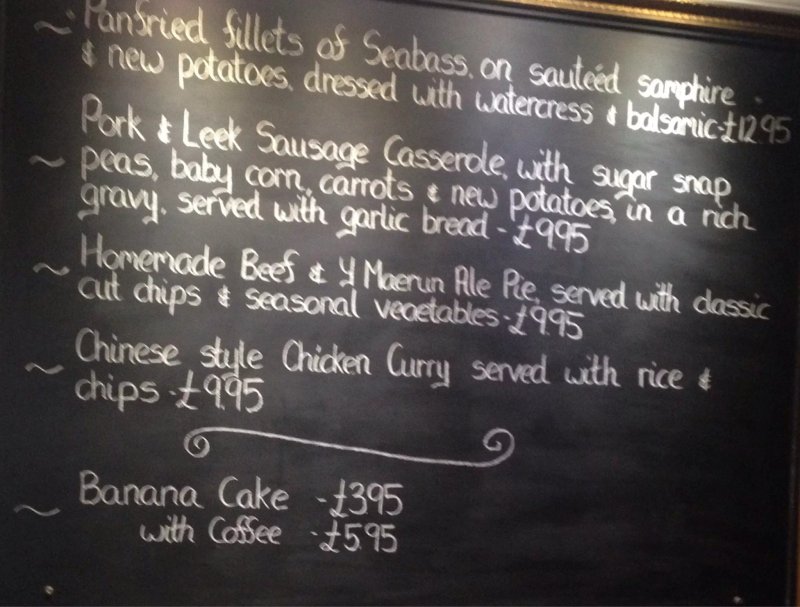 ~ Panfried fillets of Seabass, on sautéed samphire
& new potatoes, dressed with watercress & balsamic-£12.95
Pork & Leek Sausage Casserole, with sugar snap
~ peas, baby corn, carrots & new potatoes, in a rich
gravy, served with garlic bread - £9.95
~ Homemade Beef & Y Maerun Ale Pie, served with classic
cut chips & seasonal vegetables - £9.95
~ Chinese style Chicken Curry served with rice &
chips - £9.95
~ Banana Cake - £3.95
with Coffee - £5.95